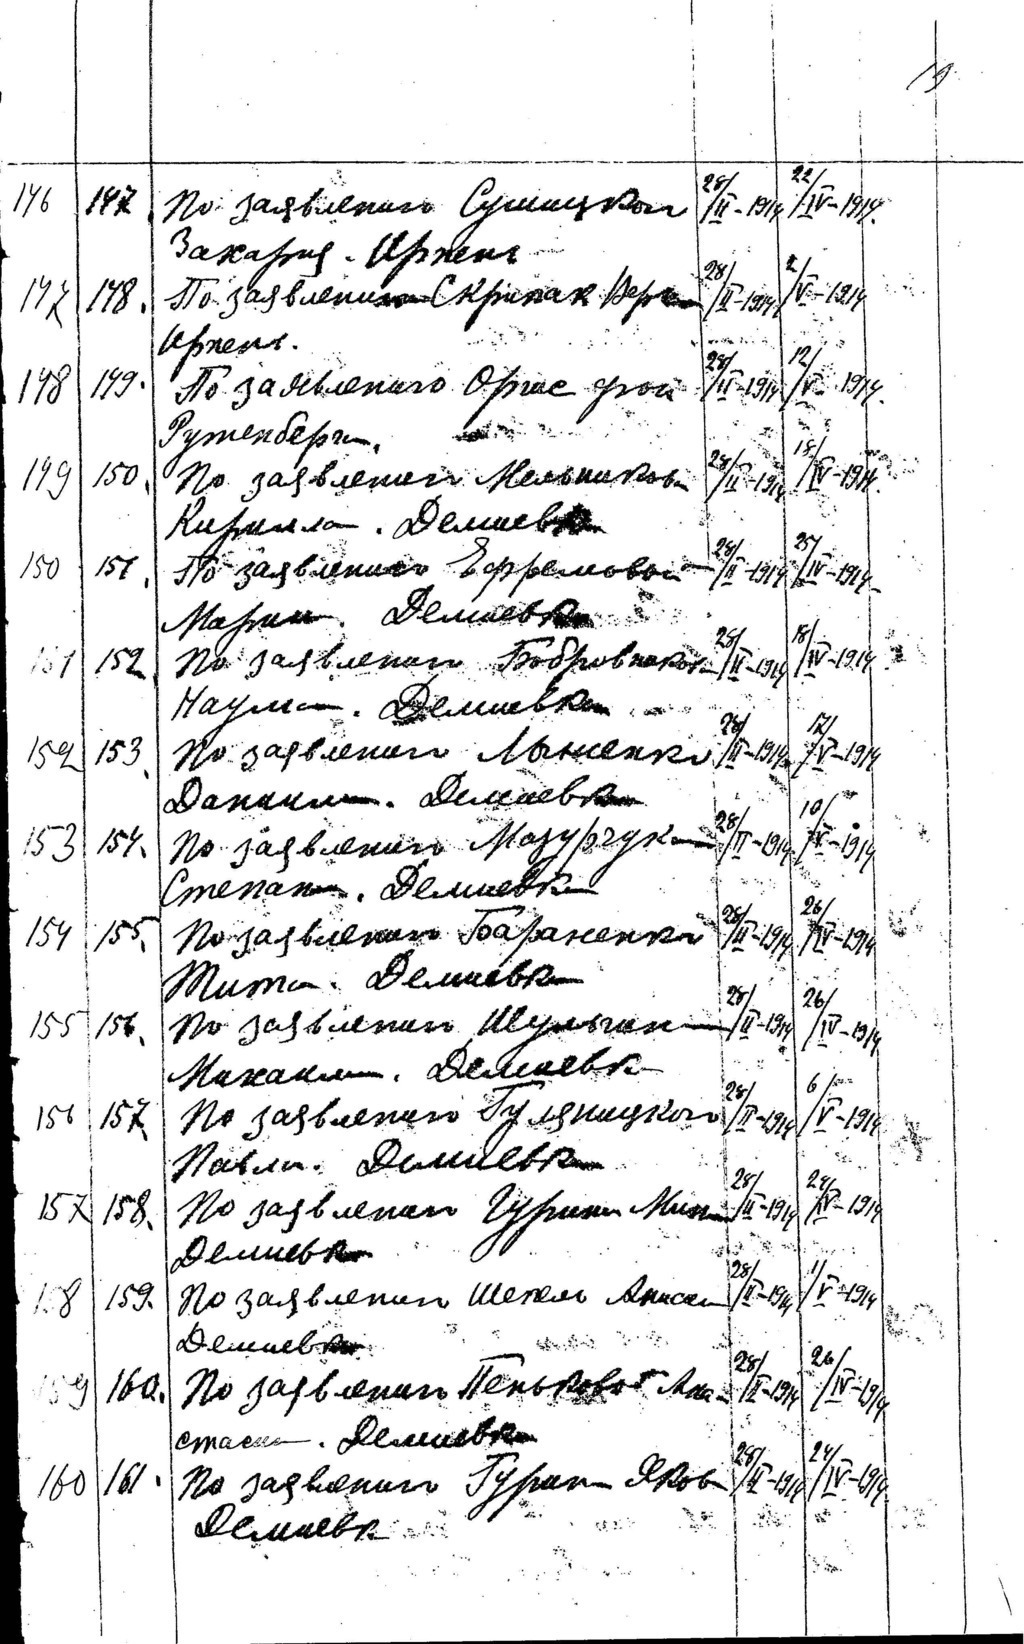 19
146 147. По заявлению Сушицкого 28/II-1914 22/IV-1914.
Захария. Ирпень
147 148. По заявлению Скрипак 28/II-1914 2/V-1914
Ирпень.
148 149. По заявлению 28/II-1914 12/V-1914.
Рутенберги.
149 150. По заявлению Мельникова 28/II-1914 18/IV-1914.
Кирилла. Демиевка
150 151. По заявлению Ефремовой 28/II-1914 25/IV-1914
Марии. Демиевка
151 152. По заявлению Бобровникова 28/II-1914 18/IV-1914
Наума. Демиевка
152 153. По заявлению Лыненко 28/II-1914 12/V-1914
Даниила. Демиевка
153 154. По заявлению Мазурчука 28/II-1914 10/V-1914
Степана. Демиевка
154 155. По заявлению Бараненко 28/II-1914 26/IV-1914
Тита. Демиевка
155 156. По заявлению Шульгина 28/II-1914 26/IV-1914
Михаила. Демиевка
156 157. По заявлению Гуляницкого 28/II-1914 6/V-1914
Павла. Демиевка
157 158. По заявлению Гурина 28/II-1914 24/IV-1914
Демиевка
158 159. По заявлению 28/II-1914 1/V-1914
Демиевка
159 160. По заявлению Пеньковой Ана- 28/II-1914 26/IV-1914
стасии. Демиевка
160 161. По заявлению Гурина Якова 28/II-1914 24/IV-1914
Демиевка